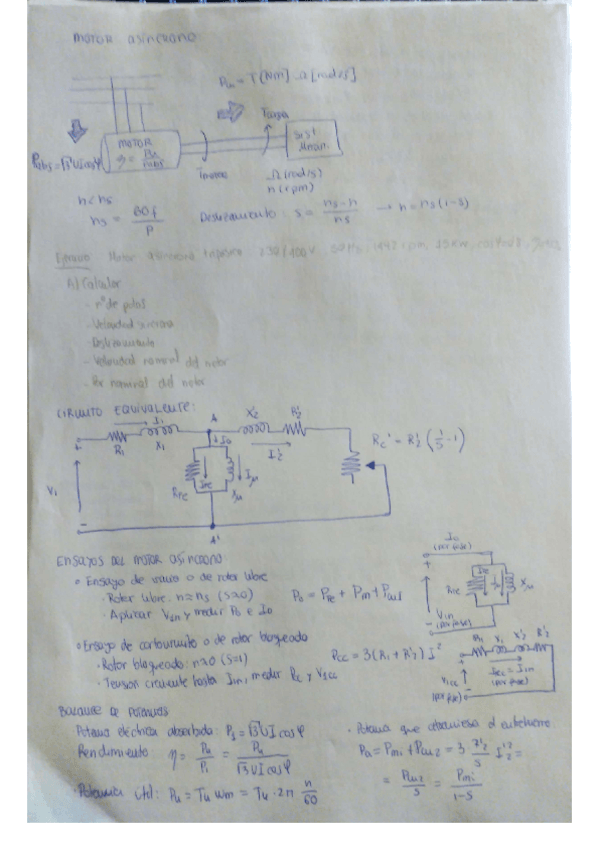 MOTOR ASÍNCRONO
Pm = T [Nm] · Ω [rad/s]
MOTOR
η = Pu / Pabs
Pabs = √3 U I cosφ
Tmotor
Ω (rad/s)
n (rpm)
n < ns
ns = 60 f / p
Deslizamiento: s = (ns - n) / ns → n = ns (1-s)
Ejemplo Motor asíncrono trifásico 230/400V 50Hz
A) Calcular
- nº de polos
- Velocidad síncrona
- Deslizamiento
- Velocidad nominal del motor
- Par nominal del motor
CIRCUITO EQUIVALENTE:
R1 X1 I1 A I0 X'2 R'2 I'2
Rc' = R'2 (1/s - 1)
V1 RFe IFe Iμ Xμ
A'
ENSAYOS DEL MOTOR ASÍNCRONO
• Ensayo de vacío o de rotor libre
· Rotor libre: n≈ns (s≈0)
· Aplicar V1n y medir P0 e I0
P0 = PFe + Pm + Pcu1
I0 (por fase)
V1n (por fase) RFe IFe Iμ Xμ
• Ensayo de cortocircuito o de rotor bloqueado
· Rotor bloqueado: n=0 (s=1)
· Tensión creciente hasta I1n, medir Pcc y V1cc
Pcc = 3(R1 + R'2) I²
R1 X1 X'2 R'2
V1cc (por fase) I1cc = I1n (por fase)
BALANCE DE POTENCIAS
Potencia eléctrica absorbida: P1 = √3 U I cosφ
Rendimiento η = Pu / P1 = Pu / (√3 U I cosφ)
· Potencia útil: Pu = Tu ωm = Tu · 2π n/60
· Potencia que atraviesa el entrehierro
Pa = Pmi + Pcu2 = 3 R'2/s I'2² =
= Pcu2 / s = Pmi / (1-s)